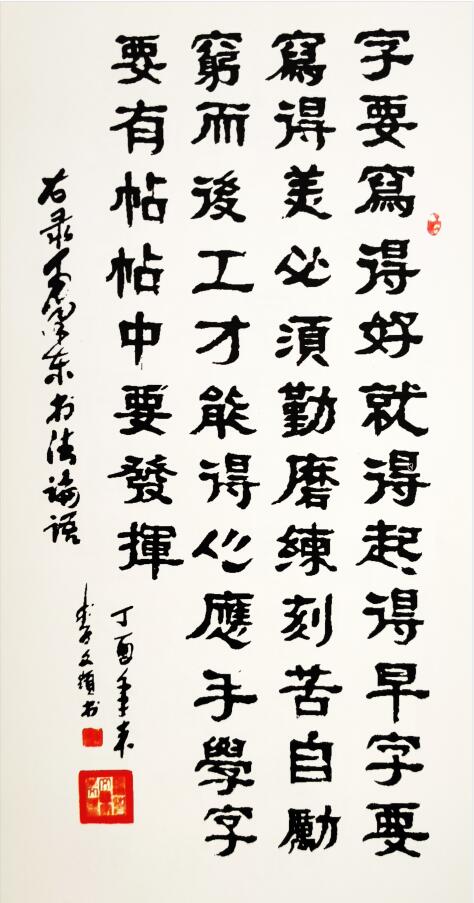 字要寫得好就得起得早字要
寫得美必須勤磨練刻苦自勵
窮而後工才能得心應手學字
要有帖帖中要發揮
右录毛泽东书法論语
丁酉年末
李文书